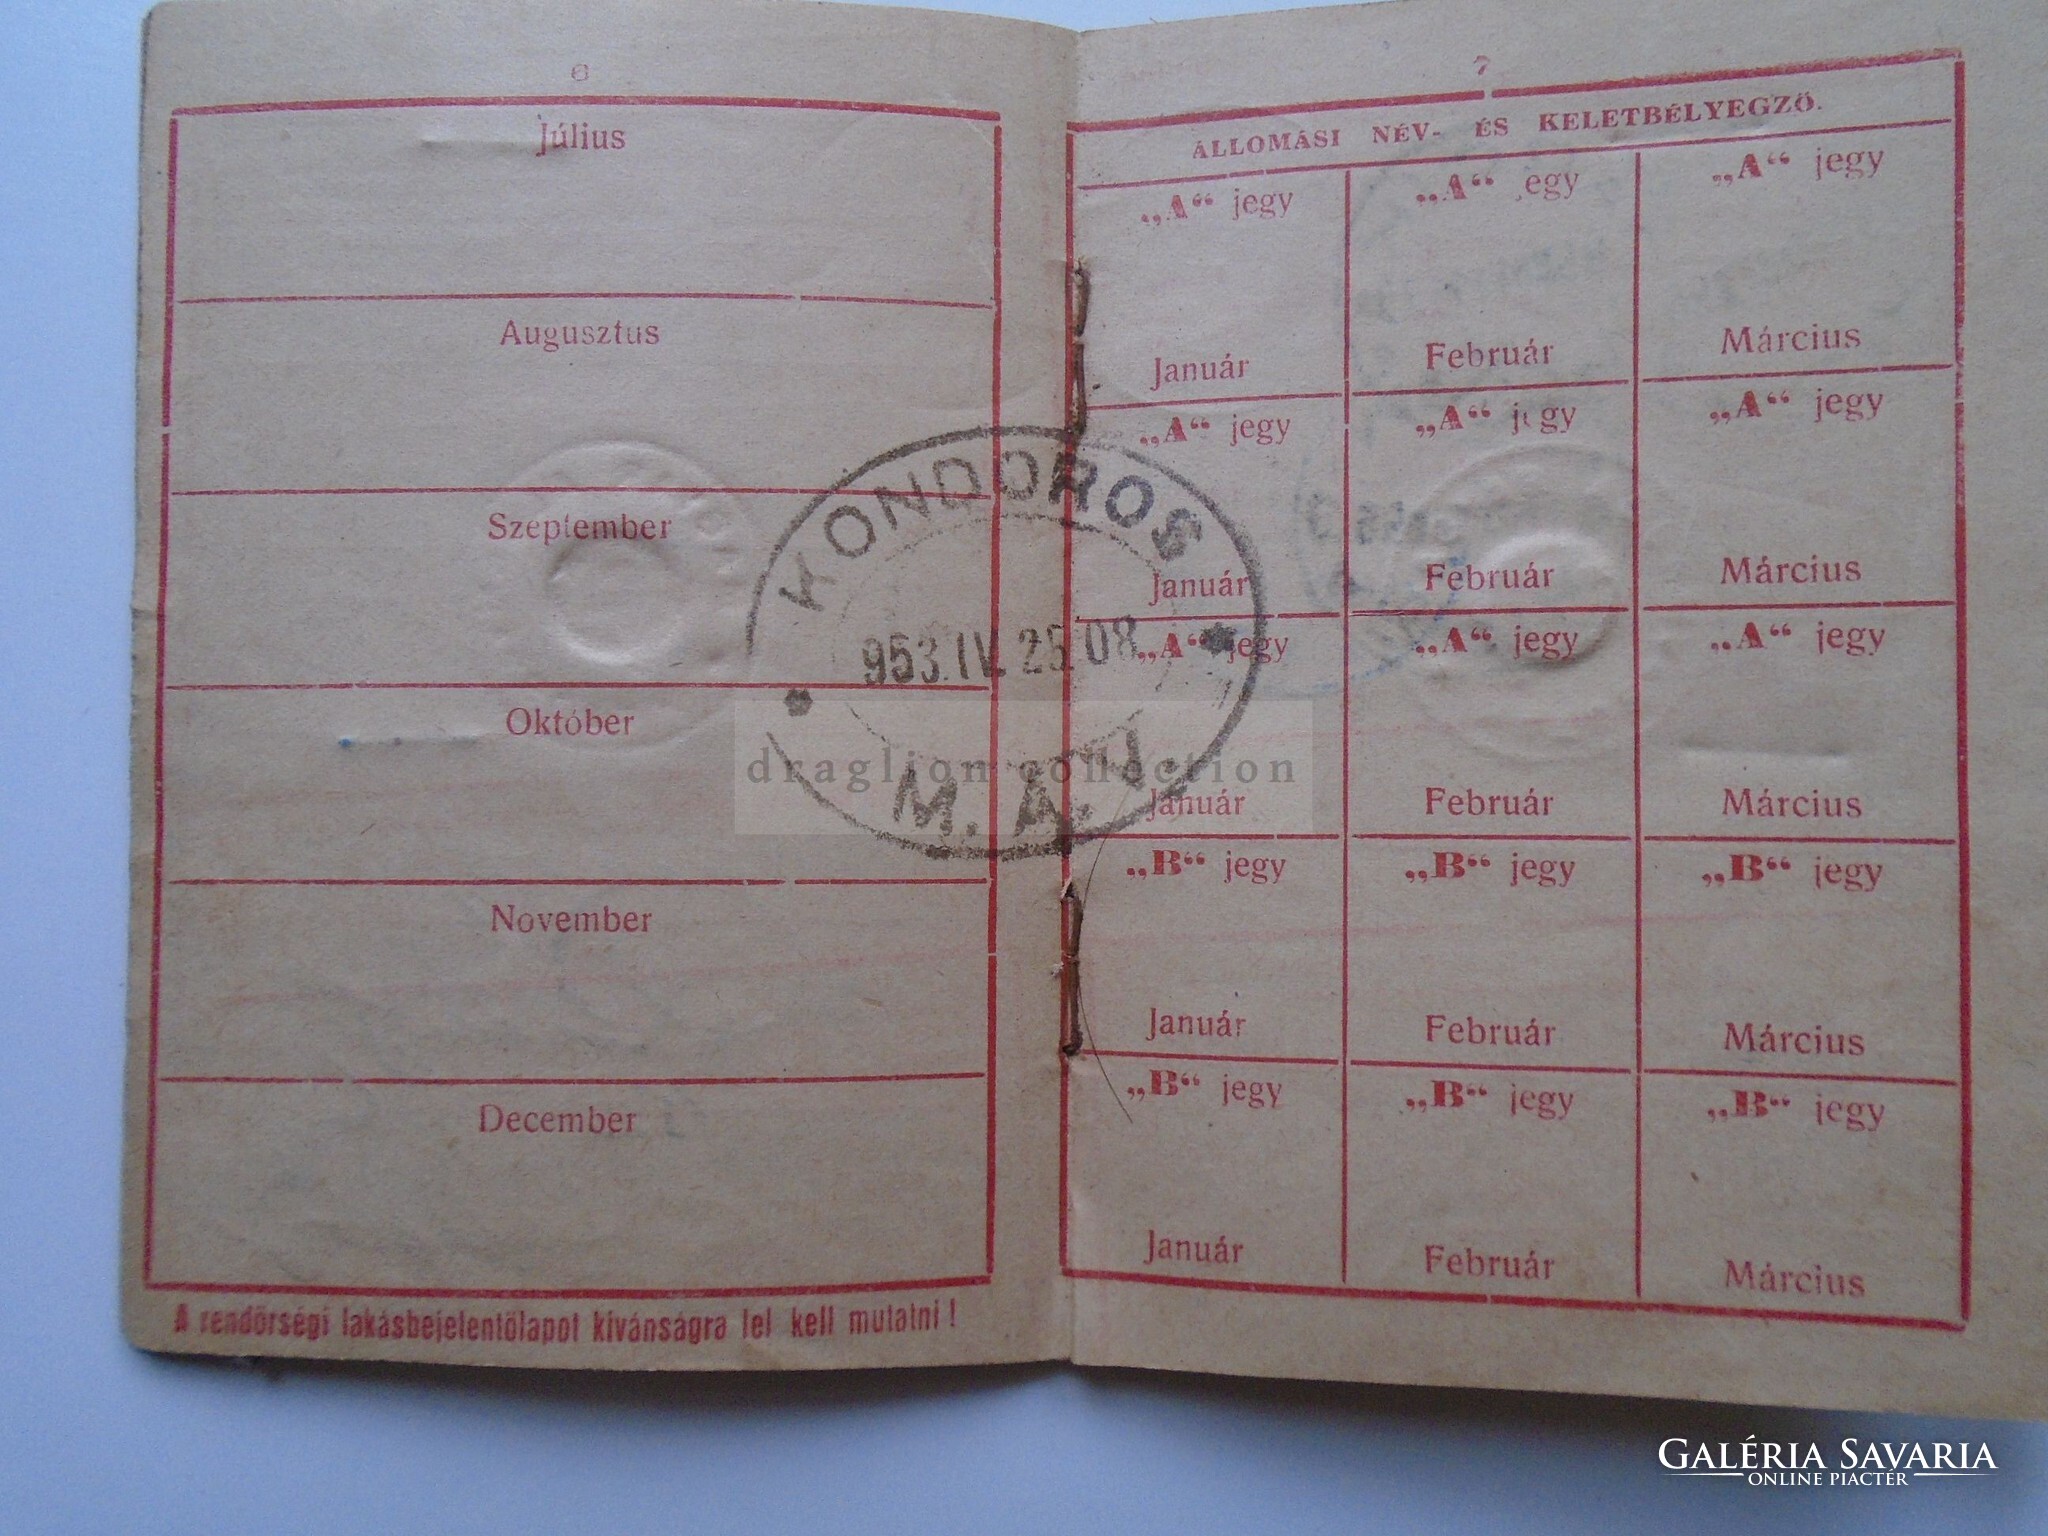 6
Július
Augusztus
Szeptember
Október
November
December
A rendőrségi lakásbejelentőlapot kívánságra fel kell mutatni!
KONDOROS
953.IV.25.08
M.Á.V.
7
ÁLLOMÁSI NÉV- ÉS KELETBÉLYEGZŐ.
„A“ jegy „A“ jegy „A“ jegy
Január Február Március
„A“ jegy „A“ jegy „A“ jegy
Január Február Március
„A“ jegy „A“ jegy „A“ jegy
Január Február Március
„B“ jegy „B“ jegy „B“ jegy
Január Február Március
„B“ jegy „B“ jegy „B“ jegy
Január Február Március
draglion collection
GALÉRIA SAVARIA
ONLINE PIACTÉR